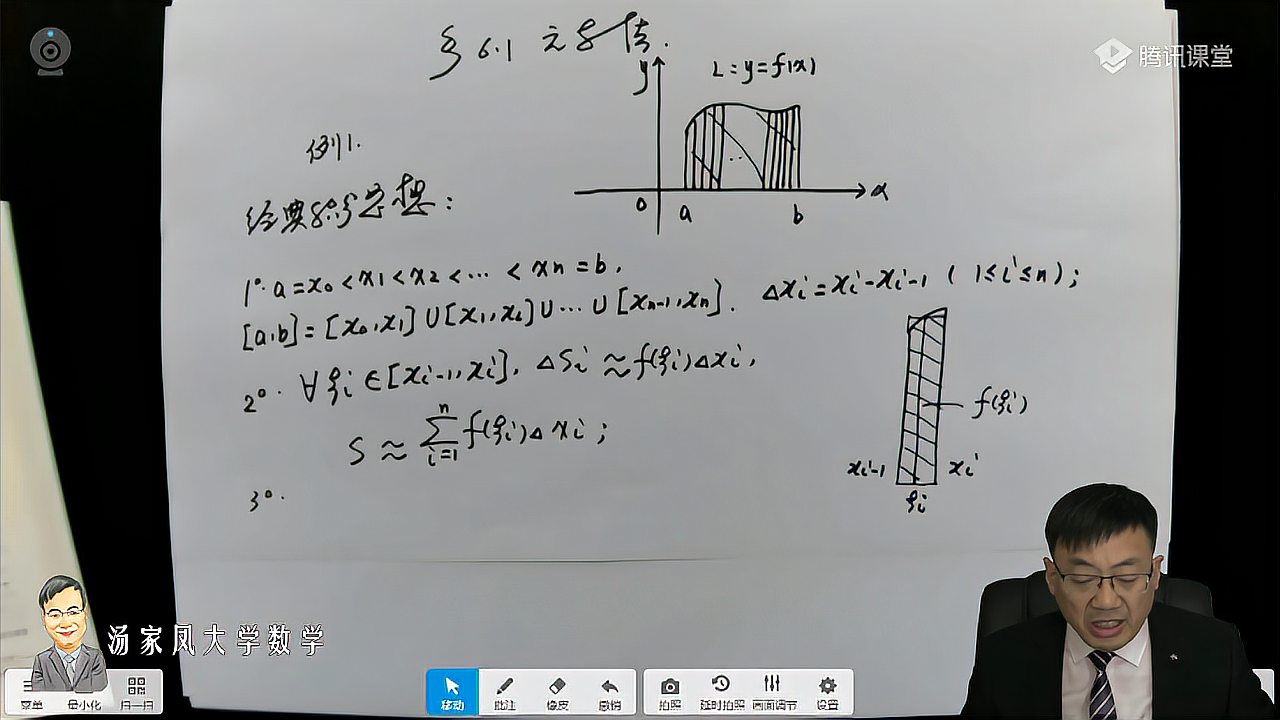 §6.1 元素法.
腾讯课堂
y
L:y=f(x)
例1.
0 a b x
经典积分思想:
1°. a=x₀<x₁<x₂<…<xₙ=b,
[a,b]=[x₀,x₁]∪[x₁,x₂]∪…∪[xₙ₋₁,xₙ]. Δxᵢ=xᵢ-xᵢ₋₁ (1≤i≤n);
2°. ∀ξᵢ∈[xᵢ₋₁,xᵢ], ΔSᵢ≈f(ξᵢ)Δxᵢ,
f(ξᵢ)
S≈∑ⁿᵢ₌₁f(ξᵢ)Δxᵢ;
xᵢ₋₁ xᵢ
ξᵢ
3°.
汤家凤大学数学
菜单 最小化 扫一扫 移动 批注 橡皮 撤销 拍照 延时拍照 画面调节 设置